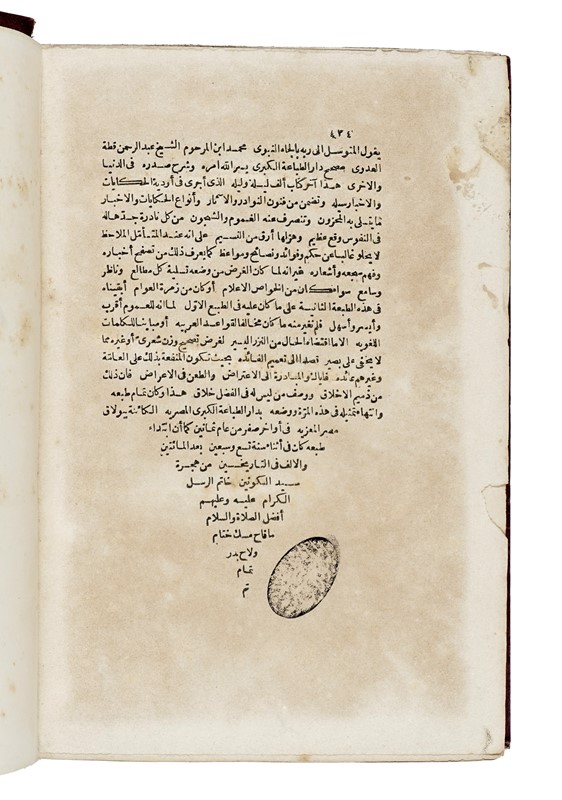 ٤٣٨
يقول المتوسل الى ربه بالجاه النبوى محمد ابن المرحوم الشيخ عبد الرحمن قطة
العدوى مصحح دار الطباعة الكبرى يسر الله امره وشرح صدره فى الدنيا
والاخرى هذا آخر كتاب ألف ليله وليله الذى أجرى فى أودية الحكايات
والاخبار سيله وتضمن من فنون النوادر والاسمار وأنواع الحكايات والاخبار
ما يتسلى به المحزون وتنصرف عنه الهموم والشجون من كل نادرة جدها له
فى النفوس وقع عظيم وهزلها أرق من النسيم على انه عند المتأمل الملاحظ
لا يخلو غالبا عن حكم وفوائد ونصائح ومواعظ كما يعرف ذلك من تصفح أخباره
وفهم سجعه وأشعاره غير انه لما كان الغرض من وضعه تسلية كل مطالع وناظر
وسامع سوا كان من الخواص الاعلام أو كان من زمرة العوام أبقيناه
فى هذه الطبعة الثانية على ما كان عليه فى الطبع الاول لما انه للعموم أقرب
وأيسر وأسهل فلم نغير منه ما كان مخالفا للقواعد العربيه أو مباينا للكلمات
اللغويه الا ما اقتضاه الحال من النزر اليسير لغرض تصحيح وزن شعرى أو غيره مما
لا يخفى على بصير قصدا الى تعميم الفائده بحيث تكون المنفعة بذلك على العامة
وغيرهم عائده فاياك والمبادرة الى الاعتراض والطعن فى الاعراض فان ذلك
من ذميم الاخلاق ووصف من ليس له فى الفضل خلاق هذا وكان تمام طبعه
وانتهاء تمثيله فى هذه المرة ووضعه بدار الطباعة الكبرى المصريه الكائنة ببولاق
مصر المعزيه فى أواخر صفر من عام ثمانين كما أن ابتداء
طبعه كان فى أثناء سنة تسع وسبعين بعد المائتين
والالف فى التاريخين من هجرة
سيد الكونين خاتم الرسل
الكرام عليه وعليهم
أفضل الصلاة والسلام
ما فاح مسك ختام
ولاح بدر
تمام
تم